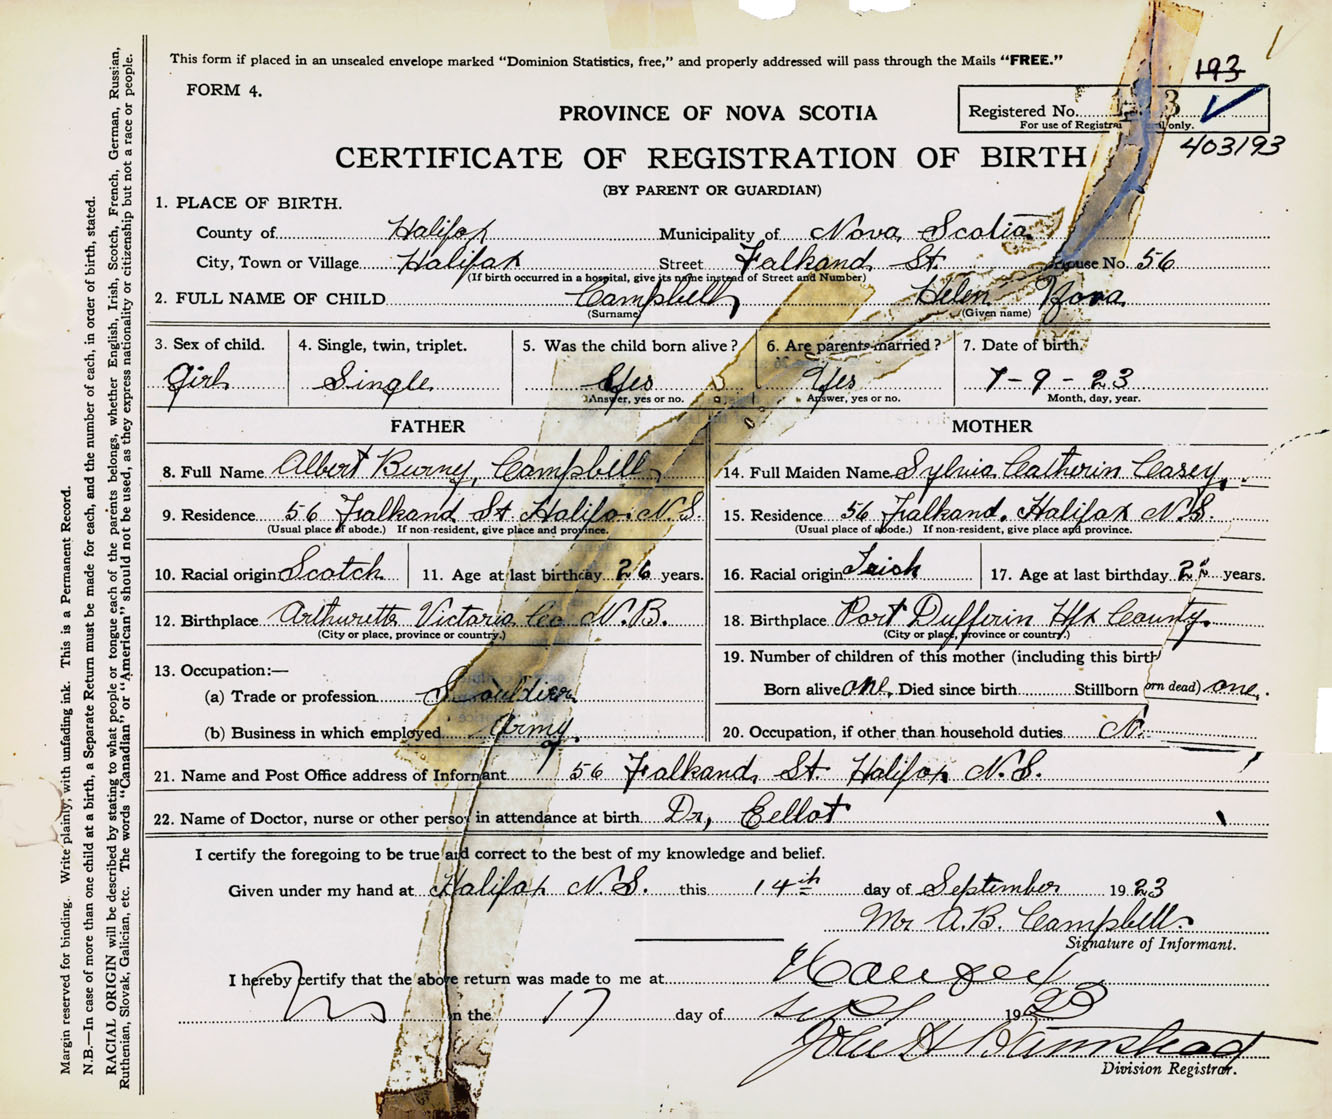 This form if placed in an unsealed envelope marked "Dominion Statistics, free," and properly addressed will pass through the Mails "FREE."
193
FORM 4.
PROVINCE OF NOVA SCOTIA
Registered No.
For use of Registrar only.
403193
CERTIFICATE OF REGISTRATION OF BIRTH
(BY PARENT OR GUARDIAN)
1. PLACE OF BIRTH.
County of Halifax Municipality of Nova Scotia
City, Town or Village Halifax Street Falkand St. House No. 56
(If birth occurred in a hospital, give its name instead of Street and Number)
2. FULL NAME OF CHILD Campbell Helen
(Surname) (Given name)
3. Sex of child. 4. Single, twin, triplet. 5. Was the child born alive? 6. Are parents married? 7. Date of birth.
Girl Single Yes Yes 7-9-23
Answer, yes or no. Answer, yes or no. Month, day, year.
FATHER MOTHER
8. Full Name Albert Burny, Campbell 14. Full Maiden Name Sylvia Catherin Casey,
9. Residence 56 Falkand St. Halifax N.S. 15. Residence 56 Falkand, Halifax N.S.
(Usual place of abode.) If non-resident, give place and province. (Usual place of abode.) If non-resident, give place and province.
10. Racial origin Scotch 11. Age at last birthday 26 years. 16. Racial origin Irish 17. Age at last birthday years.
12. Birthplace Arthurette Victoria Co N.B. 18. Birthplace Port Dufferin Hfx County,
(City or place, province or country.) (City or place, province or country.)
13. Occupation:— 19. Number of children of this mother (including this birth
(a) Trade or profession Born alive one, Died since birth Stillborn orn dead) one.
(b) Business in which employed Army 20. Occupation, if other than household duties
21. Name and Post Office address of Informant 56 Falkand, St. Halifax N.S.
22. Name of Doctor, nurse or other person in attendance at birth Dr, Eellot
I certify the foregoing to be true and correct to the best of my knowledge and belief.
Given under my hand at Halifax N.S. this 14th day of September 1923
Mr A.B. Campbell.
Signature of Informant.
I hereby certify that the above return was made to me at
on the 17 day of Sept 1923
Division Registrar.
Margin reserved for binding. Write plainly, with unfading ink. This is a Permanent Record.
N.B.—In case of more than one child at a birth, a Separate Return must be made for each, and the number of each, in order of birth, stated.
RACIAL ORIGIN will be described by stating to what people or tongue each of the parents belongs, whether English, Irish, Scotch, French, German, Russian,
Ruthenian, Slovak, Galician, etc. The words "Canadian" or "American" should not be used, as they express nationality or citizenship but not a race or people.